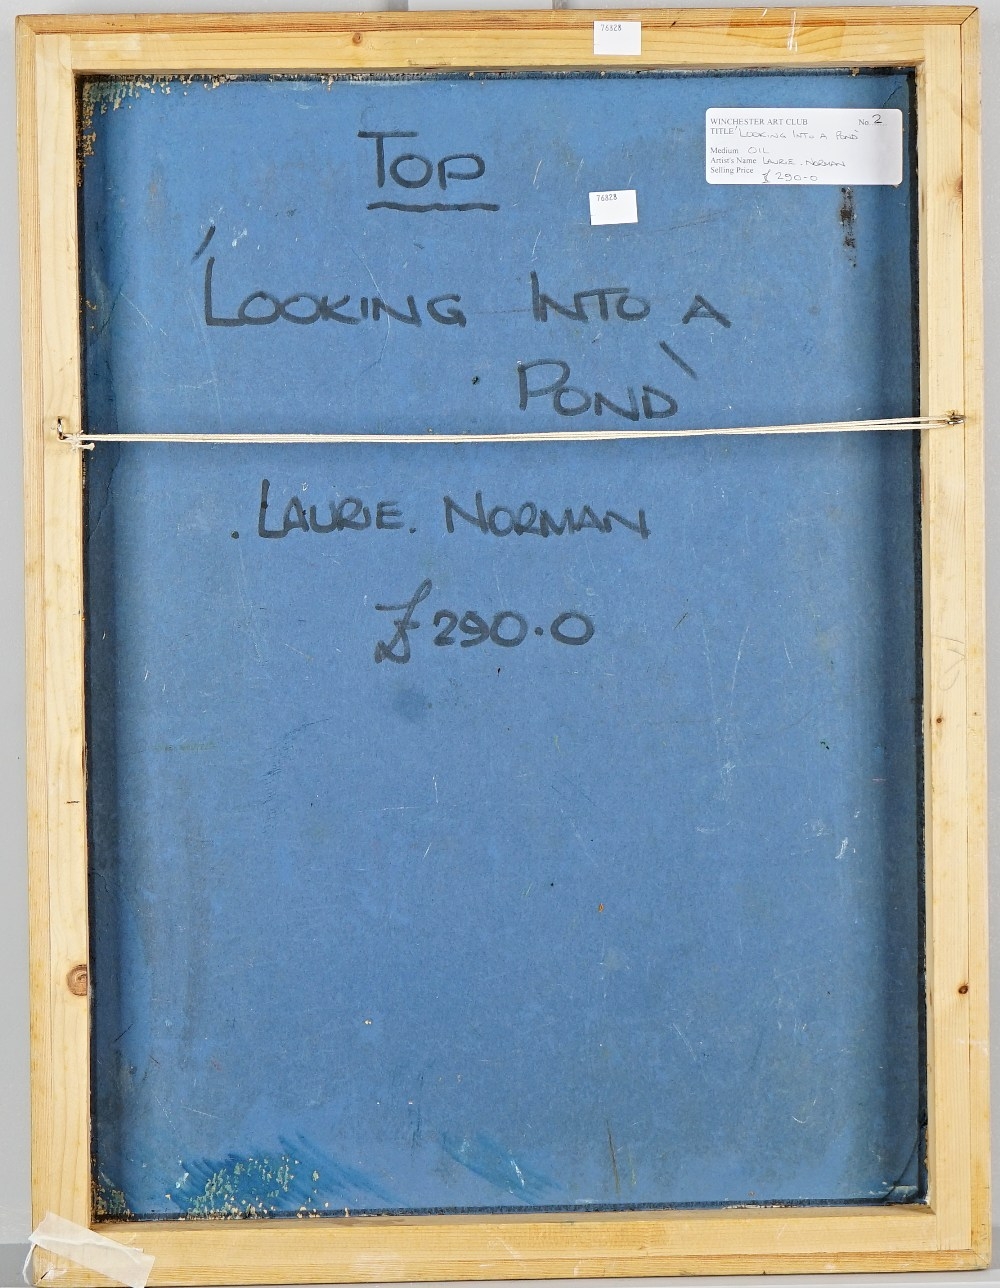 76828
WINCHESTER ART CLUB No. 2
TITLE 'LOOKING INTO A POND'
Medium OIL
Artist's Name LAURIE. NORMAN
Selling Price £ 290-0
TOP
76828
'LOOKING INTO A
POND'
. LAURIE. NORMAN
£290.0